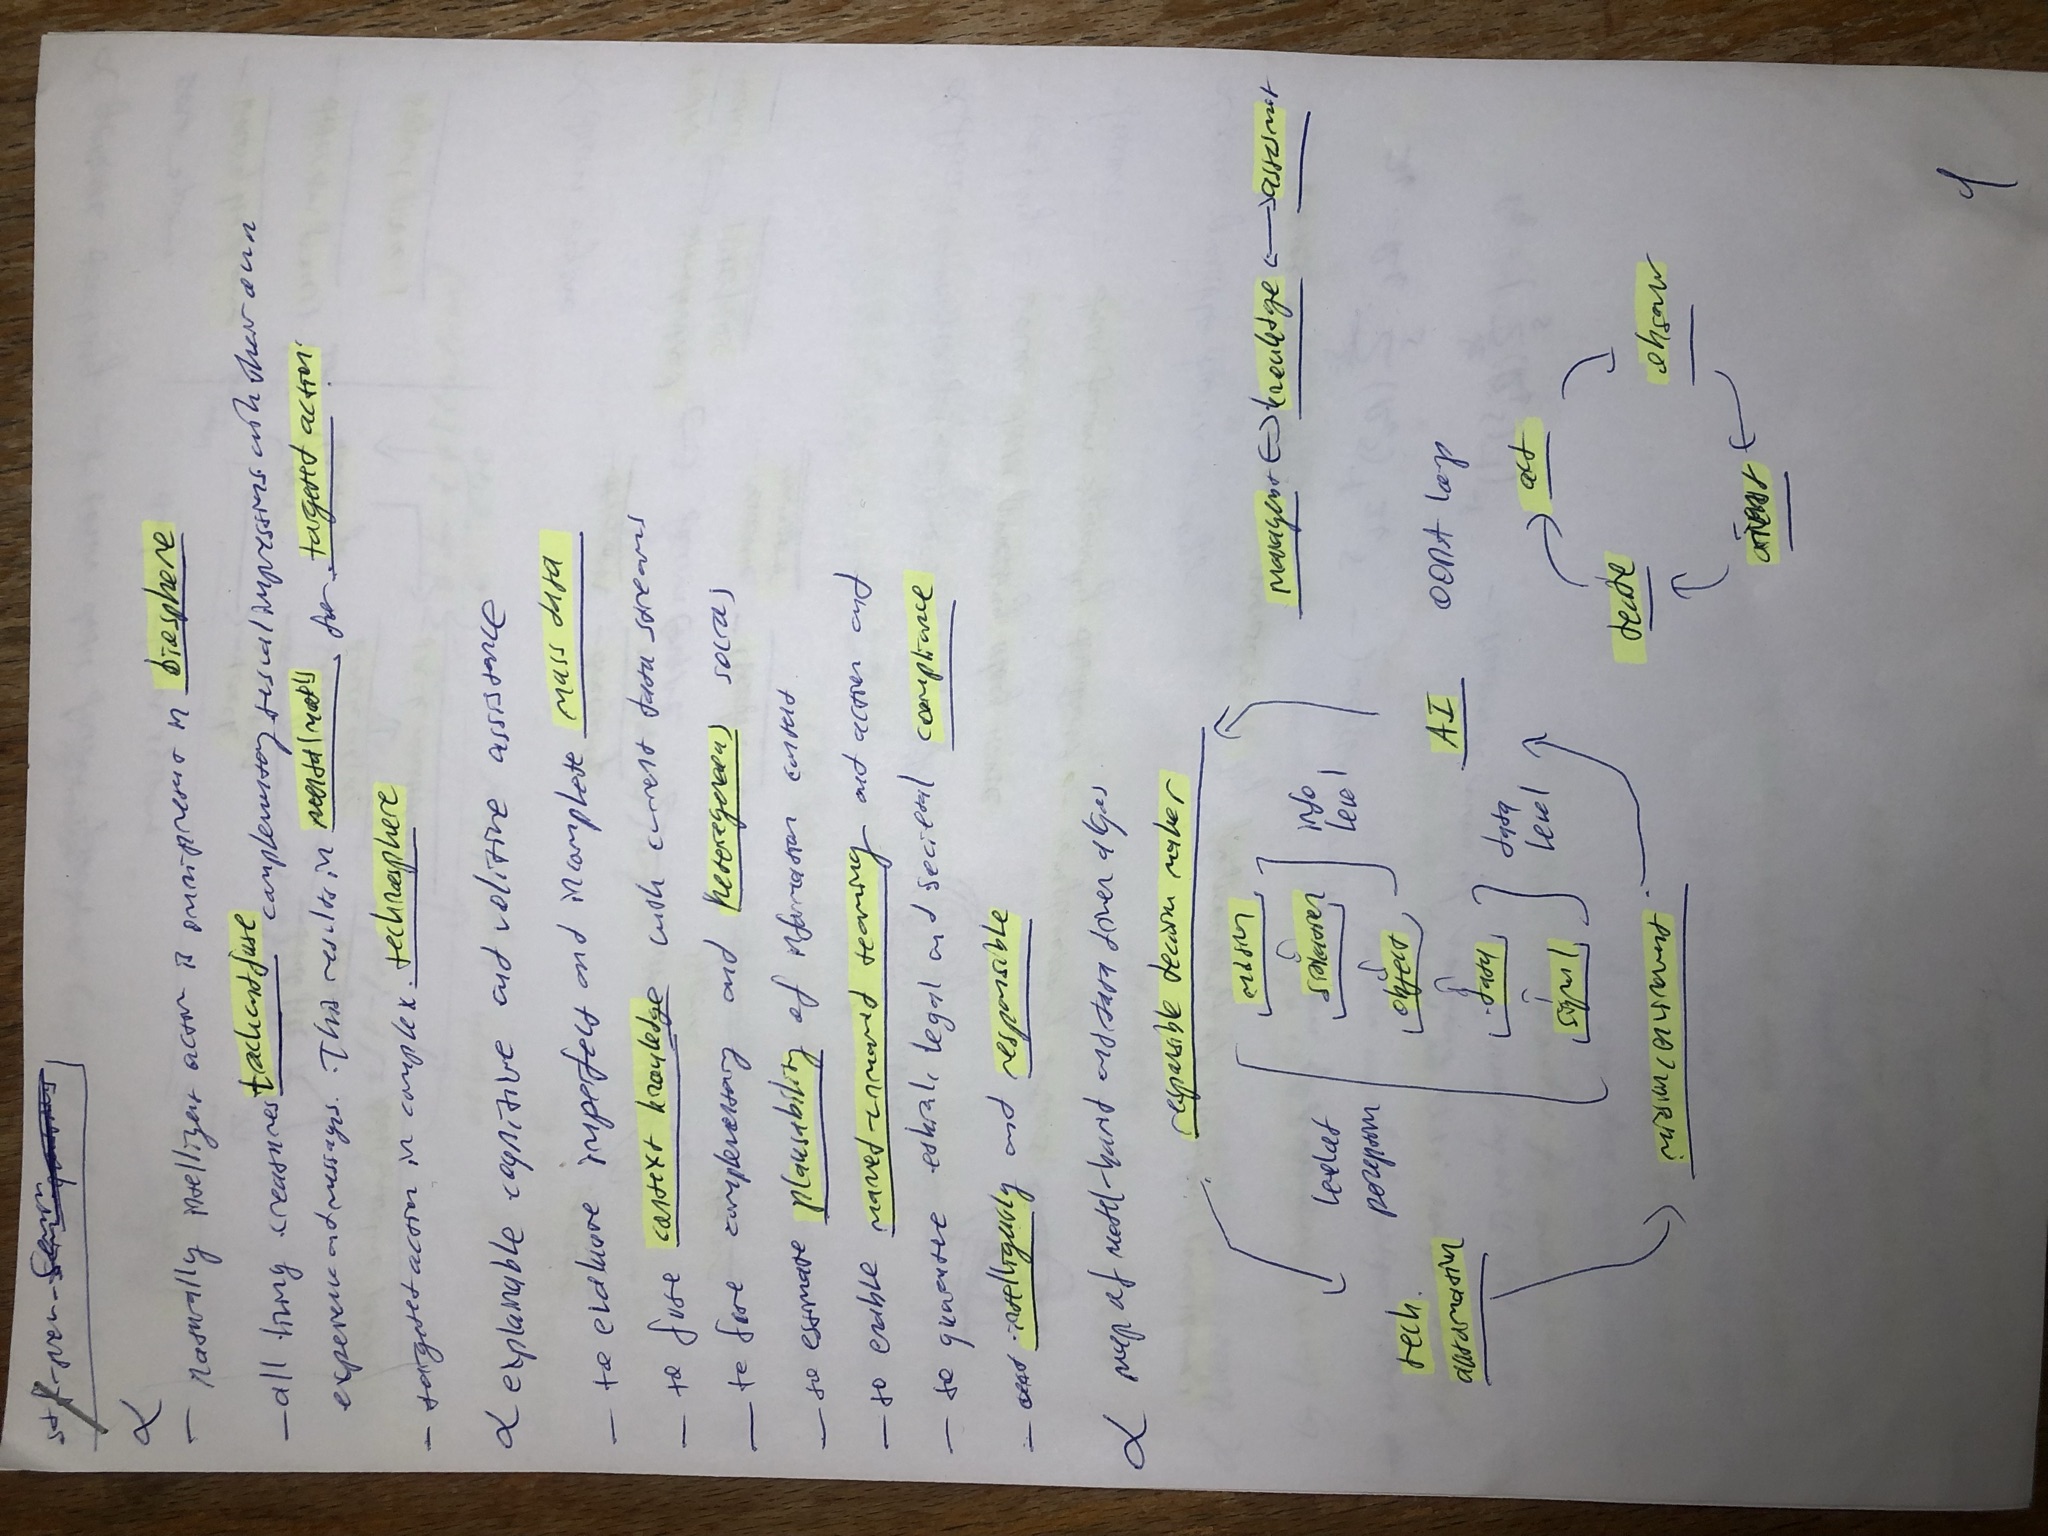 ∝
- naturally intelligent action is omnipresent in biosphere
- all living creatures track and fuse complementary sensual impressions with their own
experience and messages. This results in mental maps for targeted action
- targeted action in complex technosphere
∝ explainable cognitive and volitive assistance
- to evaluate imperfect and incomplete mass data
- to fuse context knowledge with current data streams
- to fuse complementary and heterogeneous
- to estimate plausability of information content
- to enable manned-unmanned teaming and action and
- to guarantee ethical, legal and societal compliance
- intelligibly and responsible
∝ map of model-based and data driven algos
responsible decision maker
management ⇔ knowledge ←→ assessment
tech.
automation
levels of
perception
mission
situation
object
data
signal
info
level
data
level
AI
mission / environment
OODA loop
act
observe
orient
decide